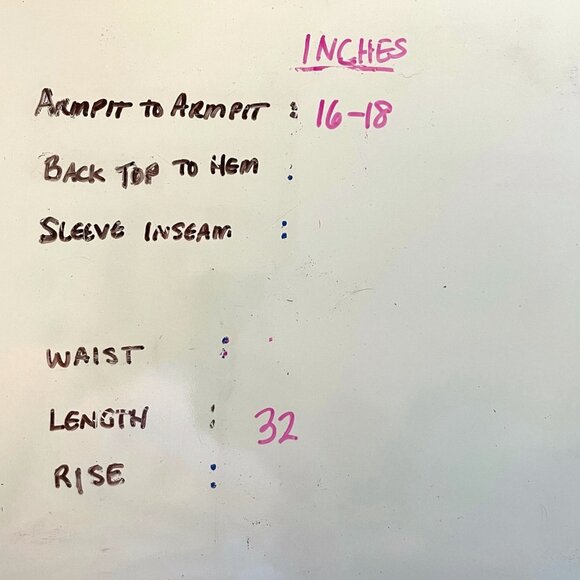 INCHES
ARMPIT TO ARMPIT : 16-18
BACK TOP TO HEM :
SLEEVE INSEAM :
WAIST :
LENGTH : 32
RISE :